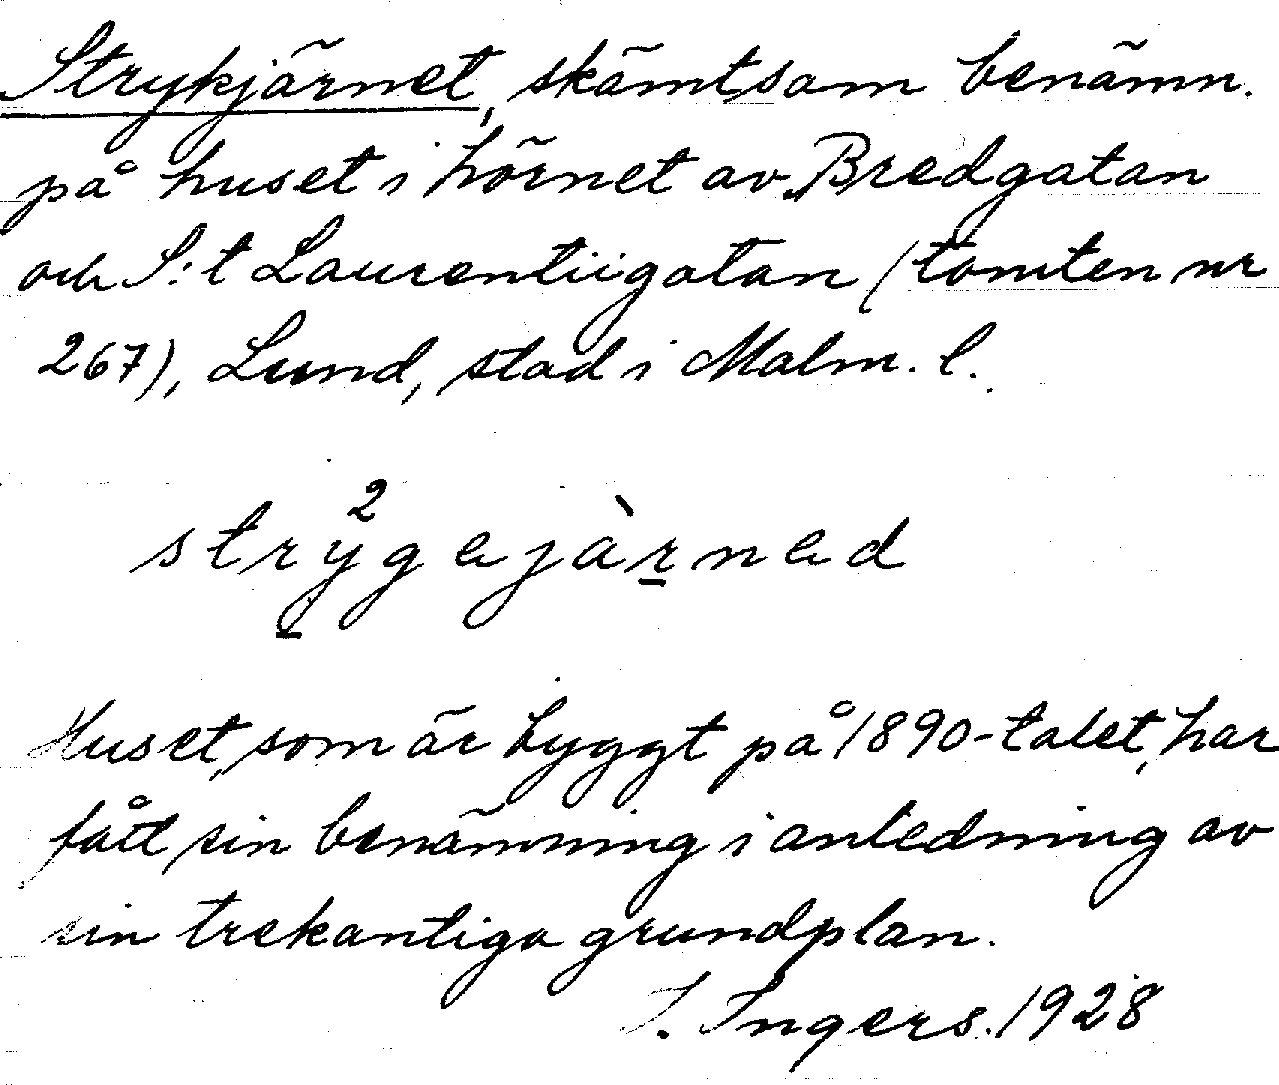 Strykjärnet, skämtsam benämn.
på huset i hörnet av Bredgatan
och S:t Laurentiigatan (tomten nr
267), Lund, stad i Malm. l.
2
strygejàrned
Huset, som är byggt på 1890-talet, har
fått sin benämning i anledning av
sin trekantiga grundplan.
I. Ingers. 1928